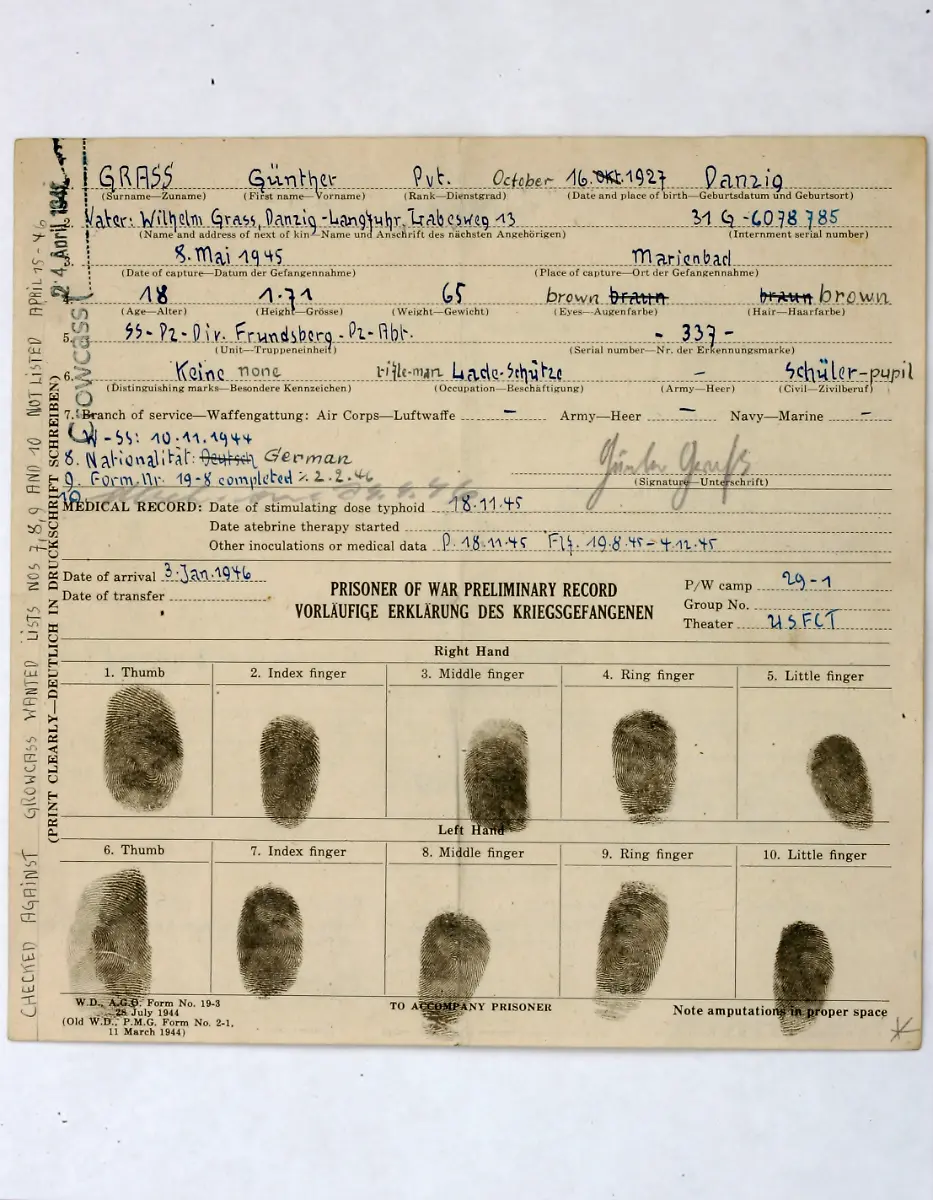 GRASS Günther Pvt. October 16. Okt. 1927 Danzig
(Surname—Zuname) (First name—Vorname) (Rank—Dienstgrad) (Date and place of birth—Geburtsdatum und Geburtsort)
2. Vater: Wilhelm Grass, Danzig-Langfuhr, Labesweg 13 31 G-6078785
(Name and address of next of kin—Name und Anschrift des nächsten Angehörigen) (Internment serial number)
8. Mai 1945 Marienbad
(Date of capture—Datum der Gefangennahme) (Place of capture—Ort der Gefangennahme)
18 1.71 65 brown braun braun brown
(Age—Alter) (Height—Grösse) (Weight—Gewicht) (Eyes—Augenfarbe) (Hair—Haarfarbe)
5. SS-Pz-Div. Frundsberg-Pz-Abt. - 337 -
(Unit—Truppeneinheit) (Serial number—Nr. der Erkennungsmarke)
6. Keine none rifle-man Lade-Schütze — Schüler-pupil
(Distinguishing marks—Besondere Kennzeichen) (Occupation—Beschäftigung) (Army—Heer) (Civil—Zivilberuf)
7. Branch of service—Waffengattung: Air Corps—Luftwaffe — Army—Heer — Navy—Marine —
W-SS: 10.11.1944
8. Nationalität: Deutsch German
9. Form. Nr. 19-8 completed 2.2.46
(Signature—Unterschrift)
10
MEDICAL RECORD: Date of stimulating dose typhoid 18.11.45
Date atebrine therapy started
Other inoculations or medical data P. 18.11.45 Flf. 19.8.45-4.12.45
Date of arrival 3. Jan. 1946
Date of transfer
PRISONER OF WAR PRELIMINARY RECORD
VORLÄUFIGE ERKLÄRUNG DES KRIEGSGEFANGENEN
P/W camp 29-1
Group No.
Theater USFET
Right Hand
1. Thumb 2. Index finger 3. Middle finger 4. Ring finger 5. Little finger
Left Hand
6. Thumb 7. Index finger 8. Middle finger 9. Ring finger 10. Little finger
W.D., A.G.O. Form No. 19-3
28 July 1944
(Old W.D., P.M.G. Form No. 2-1,
11 March 1944)
TO ACCOMPANY PRISONER
Note amputations in proper space
CHECKED AGAINST GROWCASS WANTED LISTS NOS 7,8,9 AND 10 NOT LISTED APRIL 15 46
(PRINT CLEARLY—DEUTLICH IN DRUCKSCHRIFT SCHREIBEN)
Crowcass
24. April 1946